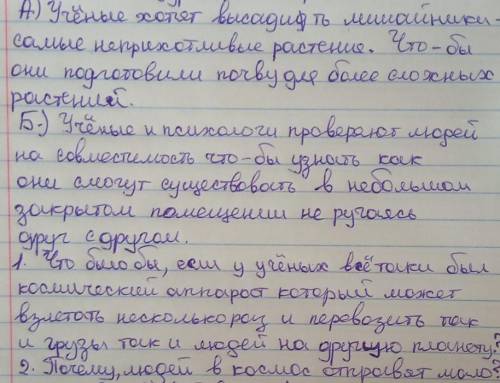 А) Учёные хотят высадить лишайники-
самые неприхотливые растение. Что-бы
они подготовили почву для более сложных
растений.
Б.) Учёные и психологи проверяют людей
на совместимость что-бы узнать как
они смогут существовать в небольшом
закрытом помещении не ругаясь
друг с другом.
1. Что было бы, если у учёных всё таки был
космический аппарат который может
взлетать несколько раз и перевозить так
и грузы так и людей на другую планету?
2. Почему, людей в космос отправят мало?